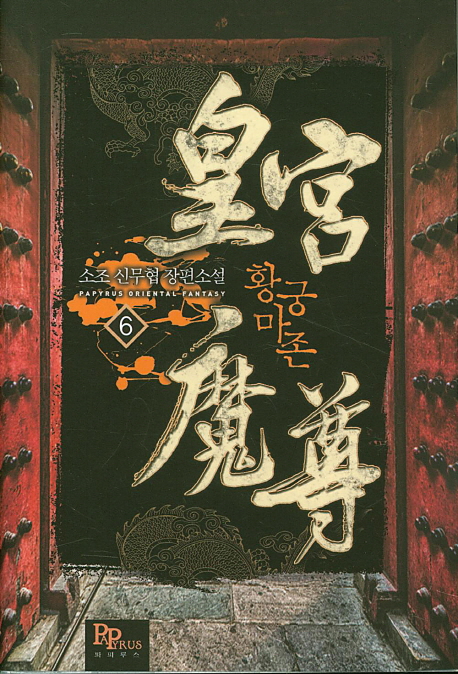 皇宮
황궁
마존
소조 신무협 장편소설
PAPYRUS ORIENTAL FANTASY
6
魔尊
PAPYRUS
파피루스